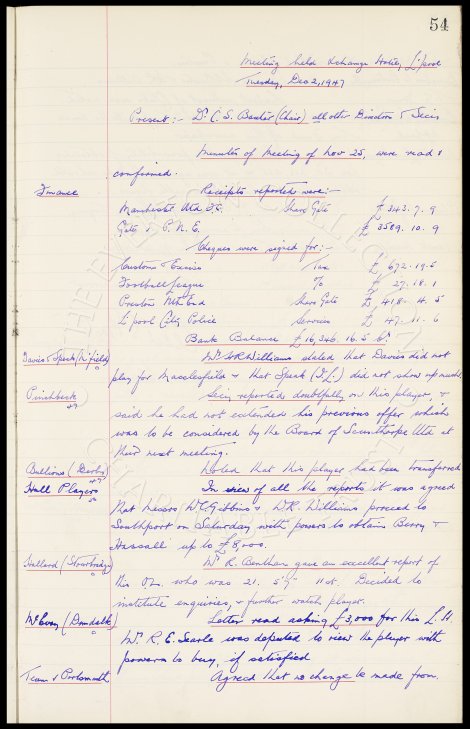 54
Meeting held Exchange Hotel, L'pool
Tuesday, Dec 2, 1947
Present:- Dr C. S. Baxter (Chair) all other Directors & Secy
Minutes of Meeting of Nov 25, were read &
confirmed.
Finance Receipts reported were:-
Manchester Utd FC. Share Gate £ 343. 7. 9
Gate v P. N. E. £ 3589. 10. 9
Cheques were signed for:-
Customs & Excise Tax £ 672. 19.
Football League % £ 27. 18. 1
Preston Nth End Share Gate £ 418. 4. 5
L'pool City Police Services £ 47. 11. 6
Bank Balance £16,346. 16. 5
Davies & Speak (M'field) Mr W.R. Williams stated that Davies did not
play for Macclesfield & that Speak (I.L.) did not show up much.
Pinchbeck Secy reported doubtfully on this player, &
said he had not extended his previous offer which
was to be considered by the Board of Scunthorpe Utd at
their next meeting.
Bullions (Derby) Noted that this player had been transferred
Hull Players In view of all the reports it was agreed
that Messrs W.C. Gibbins & W.R. Williams proceed to
Southport on Saturday with powers to obtain Berry &
Hassall up to £8,000.
Hallard (Stourbridge) Mr R. Bentham gave an excellent report of
this who was 21. 5'9½" 11st. Decided to
institute enquiries, & further watch player.
McEvoy (Dundalk) Letter read asking £3,000 for this L.H.
Mr R. E. Searle was deputed to view the player with
powers to buy, if satisfied
Team v Portsmouth Agreed that no change be made from